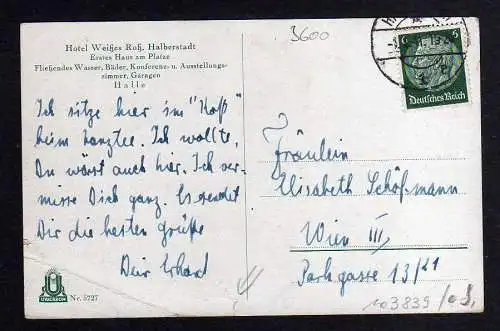 Hotel Weißes Roß, Halberstadt
Erstes Haus am Platze
Fließendes Wasser, Bäder, Konferenz- u. Ausstellungs-
zimmer, Garagen
Halle
Ich sitze hier im "Roß"
beim Tanztee. Ich wollte,
Du wärst auch hier. Ich ver-
misse Dich ganz. Es sendet
Dir die besten Grüße
Dein Erhard
UVACHROM
Nr. 5727
3600
6 6
Deutsches Reich
Fräulein
Elisabeth Schößmann
Wien III,
Parkgasse 13/21
103839